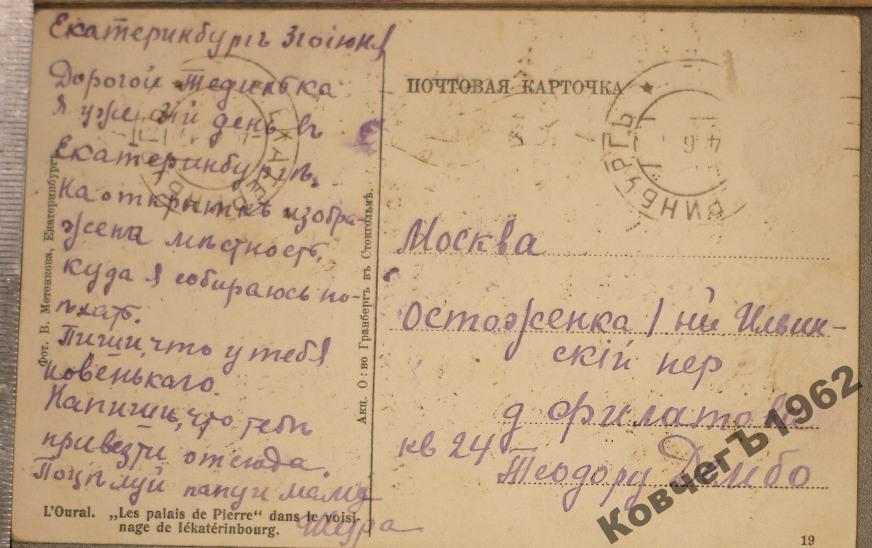 Екатеринбургъ 3го іюня
Дорогой Тедилька
я уже й день въ
Екатеринбургѣ.
На открыткѣ изобра-
жена мѣстность,
куда я собираюсь по-
ѣхать.
Пиши, что у тебя
новенькаго.
Напиши, что тебѣ
привезти отсюда.
Поцѣлуй папу и маму
Шура
L'Oural. „Les palais de Pierre“ dans le voisi-
nage de Iékatérinbourg.
Фот. В. Метенкова, Екатеринбургъ.
Акц. О:во Гранбергъ въ Стокгольмѣ.
ПОЧТОВАЯ КАРТОЧКА
Москва
Остоженка 1ый Ильин-
скій пер
д Филатова
кв 24
Теодору Дембо
19
КовчегЪ1962